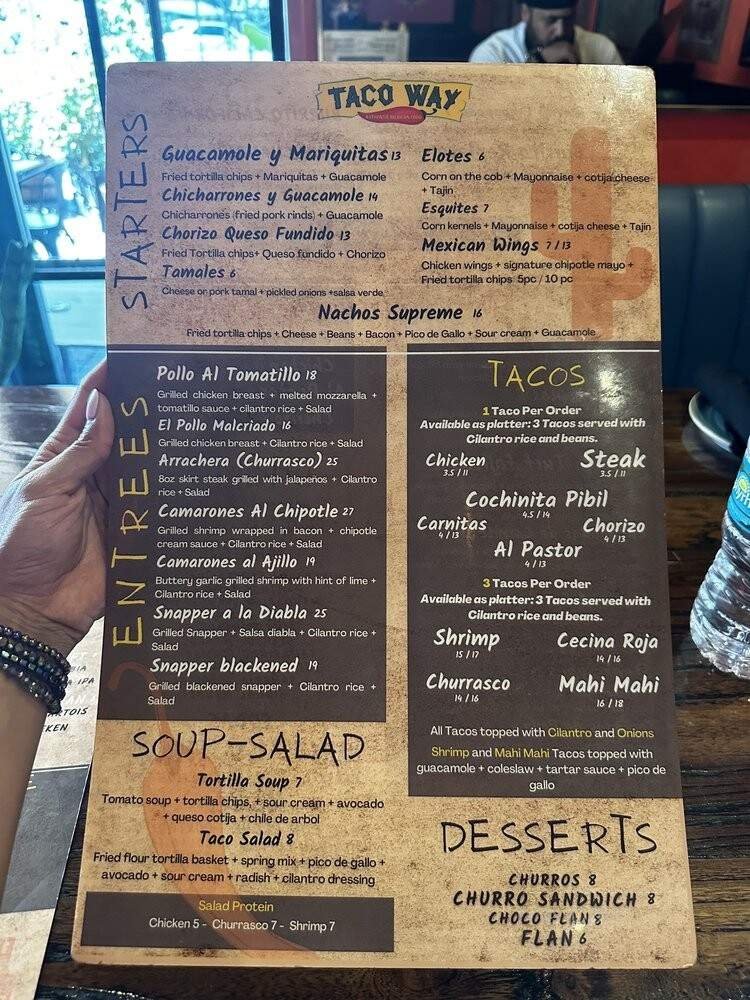 TACO WAY
AUTHENTIC MEXICAN FOOD
STARTERS
Guacamole y Mariquitas 13
Fried tortilla chips + Mariquitas + Guacamole
Chicharrones y Guacamole 14
Chicharrones (fried pork rinds) + Guacamole
Chorizo Queso Fundido 13
Fried Tortilla chips+ Queso fundido + Chorizo
Tamales 6
Cheese or pork tamal + pickled onions +salsa verde
Elotes 6
Corn on the cob + Mayonnaise + cotija cheese
+ Tajin
Esquites 7
Corn kernels + Mayonnaise + cotija cheese + Tajin
Mexican Wings 7 / 13
Chicken wings + signature chipotle mayo +
Fried tortilla chips 5pc / 10 pc
Nachos Supreme 16
Fried tortilla chips + Cheese + Beans + Bacon + Pico de Gallo + Sour cream + Guacamole
ENTREES
Pollo Al Tomatillo 18
Grilled chicken breast + melted mozzarella +
tomatillo sauce + cilantro rice + Salad
El Pollo Malcriado 16
Grilled chicken breast + Cilantro rice + Salad
Arrachera (Churrasco) 25
8oz skirt steak grilled with jalapeños + Cilantro
rice + Salad
Camarones Al Chipotle 27
Grilled shrimp wrapped in bacon + chipotle
cream sauce + Cilantro rice + Salad
Camarones al Ajillo 19
Buttery garlic grilled shrimp with hint of lime +
Cilantro rice + Salad
Snapper a la Diabla 25
Grilled Snapper + Salsa diabla + Cilantro rice +
Salad
Snapper blackened 19
Grilled blackened snapper + Cilantro rice +
Salad
TACOS
1 Taco Per Order
Available as platter: 3 Tacos served with
Cilantro rice and beans.
Chicken Steak
3.5 / 11 3.5 / 11
Cochinita Pibil
4.5 / 14
Carnitas Chorizo
4 / 13 4 / 13
Al Pastor
4 / 13
3 Tacos Per Order
Available as platter: 3 Tacos served with
Cilantro rice and beans.
Shrimp Cecina Roja
15 / 17 14 / 16
Churrasco Mahi Mahi
14 / 16 16 / 18
All Tacos topped with Cilantro and Onions
Shrimp and Mahi Mahi Tacos topped with
guacamole + coleslaw + tartar sauce + pico de
gallo
SOUP-SALAD
Tortilla Soup 7
Tomato soup + tortilla chips, + sour cream + avocado
+ queso cotija + chile de arbol
Taco Salad 8
Fried flour tortilla basket + spring mix + pico de gallo +
avocado + sour cream + radish + cilantro dressing
Salad Protein
Chicken 5 - Churrasco 7 - Shrimp 7
DESSERTS
CHURROS 8
CHURRO SANDWICH 8
CHOCO FLAN 8
FLAN 6
IPA